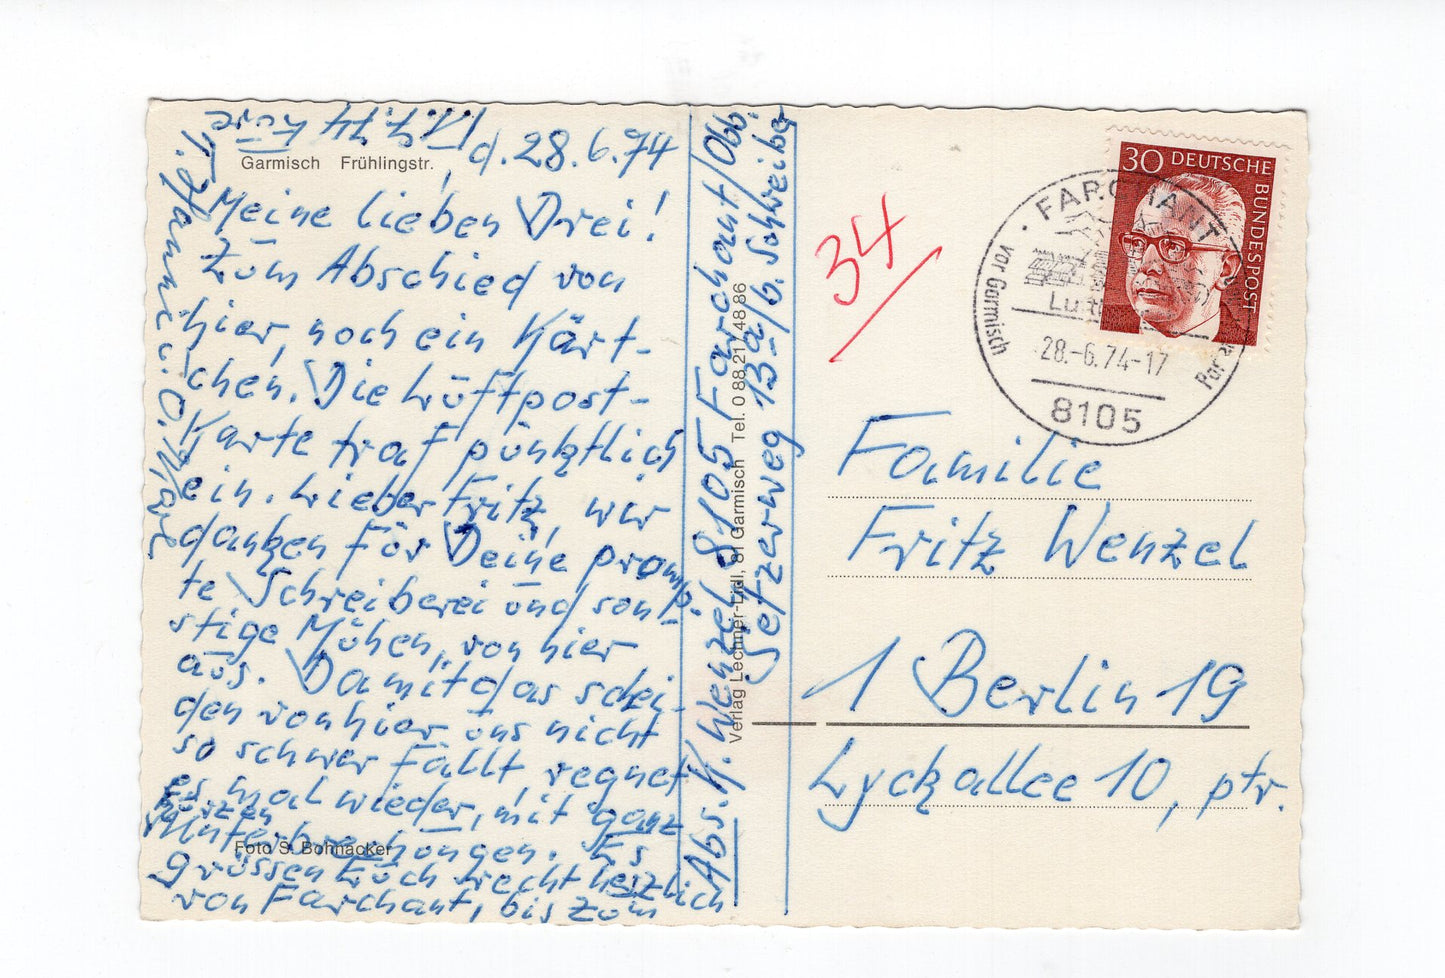 d. 28.6.74
Garmisch Frühlingstr.
Meine lieben Drei!
Zum Abschied von
hier, noch ein Kärt-
chen. Die Luftpost-
Karte traf pünktlich
ein. Lieber Fritz, wir
danken für Deine promp-
te Schreiberei und son-
stige Mühen, von hier
aus. Damit das schei-
den von hier uns nicht
so schwer fällt, regnet
es mal wieder, mit ganz
kurzen
Unterbrechungen. Es
Foto S. Bohnacker
grüssen Euch recht herzlich
von Farchant, bis zum
17.7.74 Eure
T. Hanni u. O. Karl
Abs. K. Wenzel 8105 Farchant/Obb.
Setzerweg 13 a/b. Schreiber
Verlag Lechner-Lidl, 81 Garmisch Tel. 0 88 21 / 48 86
34
30 DEUTSCHE BUNDESPOST
FARCHANT
vor Garmisch
28.-6.74-17
8105
Familie
Fritz Wenzel
1 Berlin 19
Lyckallee 10, ptr.